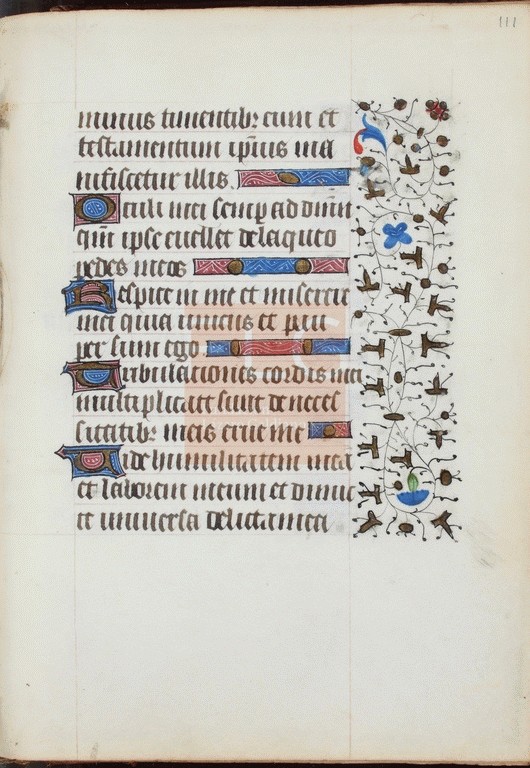 111
minus timentibz eum et
testamentum ipius ma
nifestetur illis.
Oculi mei semp ad dnm
qm ipse evellet de laqueo
pedes meos
Respice in me et miserere
mei quia unicus et pau
per sum ego
Tribulationes cordis mei
multiplicate sunt de neces
sitatibz meis erue me
Vide humilitatem mea
et laborem meum et dimitte
et universa delicta mea